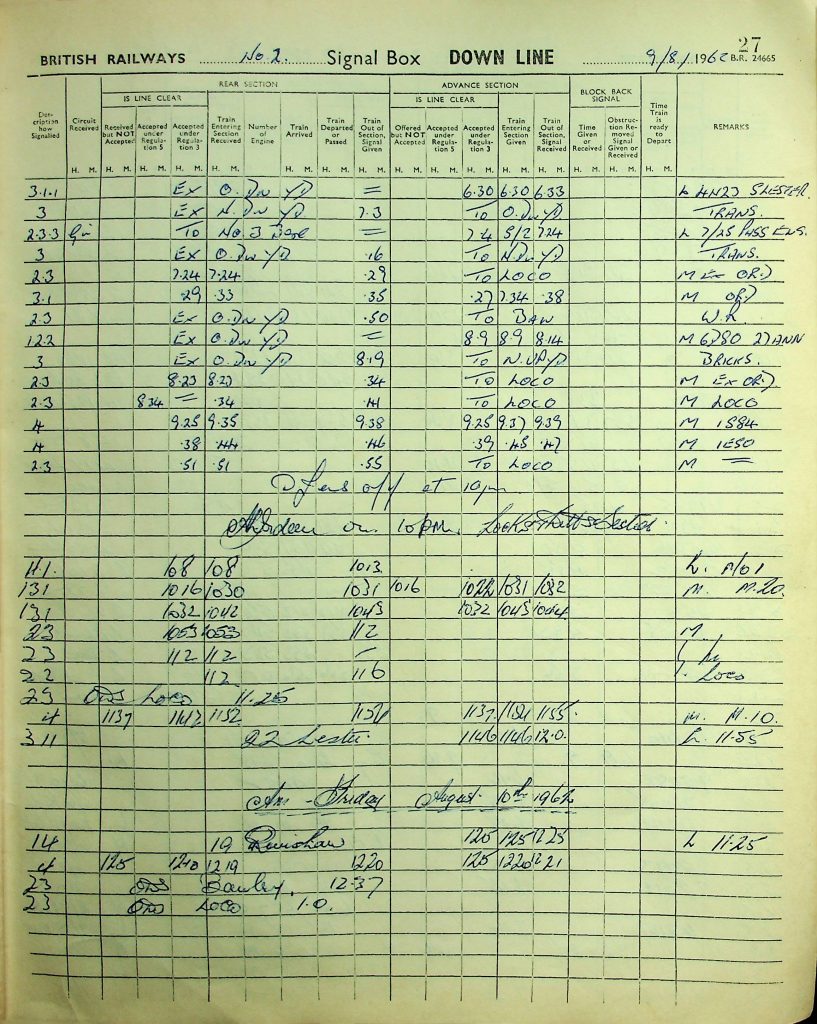 27
BRITISH RAILWAYS No 2. Signal Box DOWN LINE 9/8/1962 B.R. 24665
REAR SECTION ADVANCE SECTION BLOCK BACK SIGNAL
IS LINE CLEAR IS LINE CLEAR
Description how Signalled Circuit Received Received but NOT Accepted Accepted under Regulation 5 Accepted under Regulation 3 Train Entering Section Received Number of Engine Train Arrived Train Departed or Passed Train Out of Section, Signal Given Offered but NOT Accepted Accepted under Regulation 5 Accepted under Regulation 3 Train Entering Section Given Train Out of Section, Signal Received Time Given or Received Obstruction Removed Signal Given or Received Time Train is ready to Depart REMARKS
H. M. H. M. H. M. H. M. H. M. H. M. H. M. H. M. H. M. H. M. H. M. H. M. H. M. H. M. H. M. H. M.
3.1.1 Ex O. Dn YD = 6.30 6.30 6.33 L 4N23
3 Ex N. Dn YD 7.3 To O. Dn YD TRANS.
2.3.3 To No. 3 = 7.4 5/2 7.24 L 7/25 PASS ENS.
3 Ex O. Dn YD .16 To N. Dn YD TRANS.
2.3 7.24 7.24 .29 To LOCO M Ex ORD
3.1 .29 .33 .35 .27 7.34 .38 M ORD
2.3 Ex O. Dn YD .50 To BAW W.R.
1.2.2 Ex O. Dn YD = 8.9 8.9 8.14 M 6780 27 ANN
3 Ex O. Dn YD 8.19 To N. UP YD BRICKS.
2.3 8.23 8.23 .34 To LOCO M Ex ORD
2.3 8.34 = .34 .41 To LOCO M LOCO
4 9.25 9.35 9.38 9.25 9.37 9.39 M 1S84
4 .38 .44 .46 .39 .45 .47 M 1E50
2.3 .51 .51 .55 To LOCO M =
off at 10pm
on 10pm.
4.1. 10 8 10 8 10 13 L.
131 10 16 10 30 10 31 10 16 10 22 10 31 10 32 M. M.20.
131 10 32 10 42 10 43 10 32 10 43 10 44
23 10 53 10 53 11 2 M
23 11 2 11 2
22 11 2 11 6 Loco
23 Loco 11.25
4 11 37 11 47 11 52 11 54 11 37 11 54 11 55 M. M.10.
311 22 Lester 11 46 11 46 12.0. L. 11.55
Am - Friday August 10th 1962
14 19 12 5 12 5 12 25 L 11.25
4 12 5 12 10 12 19 12 20 12 5 12 20 12 21
23 12.37
23 Loco 1.0.